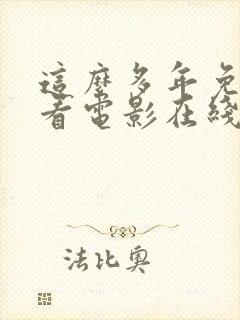 這麼多年免
看電影在綫
法比奧